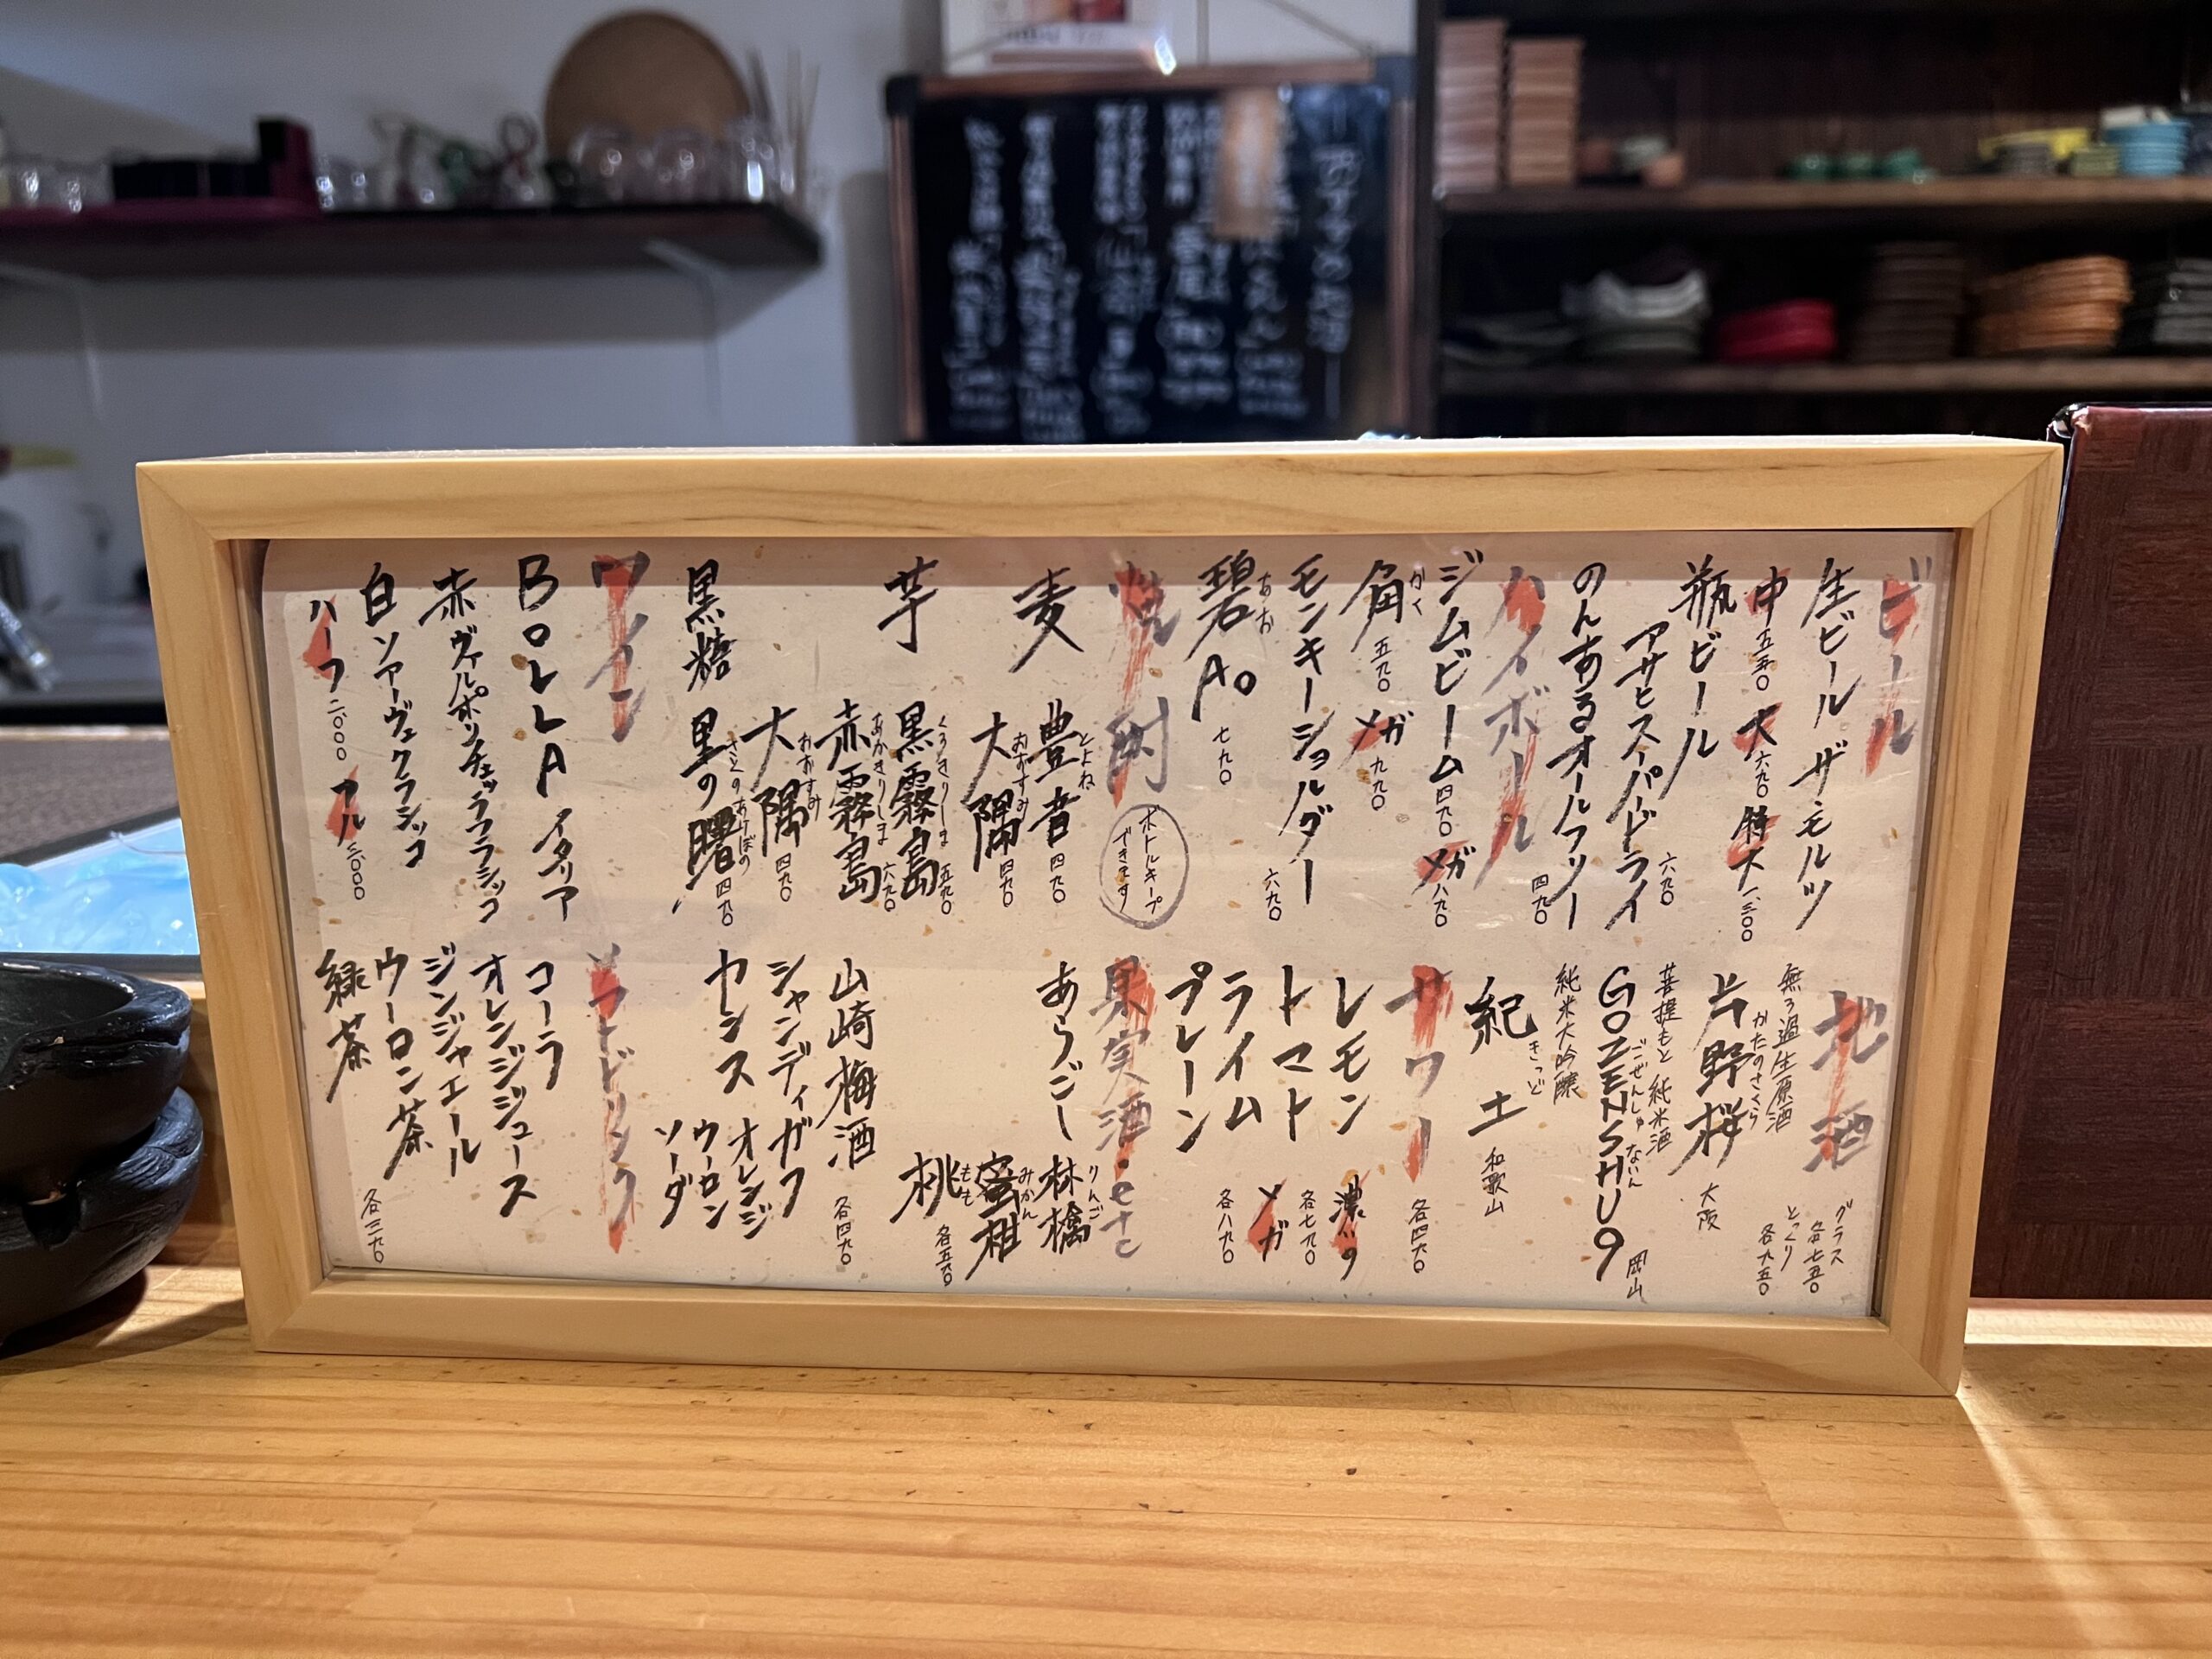 ビール
生ビール ザ・モルツ
中 五五〇 大 六九〇 特大 一三〇〇
瓶ビール
アサヒスーパードライ 六九〇
のんあるオールフリー 四九〇
ハイボール
ジムビーム 四九〇 メガ 八九〇
角 かく 五九〇 メガ 九九〇
モンキーショルダー 六九〇
碧 あお Ao 七九〇
焼酎 ボトルキープできます
麦 豊音 とよね 四九〇
大隅 おおすみ 四九〇
芋 黒霧島 くろきりしま 五九〇
赤霧島 あかきりしま 六九〇
大隅 おおすみ 四九〇
黒糖 里の曙 さとのあけぼの 四九〇
ワイン
BOLLA イタリア
赤 ヴァルポリチェッラクラシッコ
白 ソアーヴェクラシッコ
ハーフ 二〇〇〇 フル 三〇〇〇
地酒 グラス 各七五〇
とっくり 各九五〇
無ろ過生原酒
片野桜 かたのさくら 大阪
菩提もと 純米酒
GOZENSHU9 ごぜんしゅ ないん 岡山
純米大吟醸
紀土 きっど 和歌山
サワー 各四六〇
レモン 濃いの
トマト 各七九〇
ライム メガ
プレーン 各八九〇
果実酒・etc
あらごし 林檎 りんご
蜜柑 みかん
桃 もも 各五六〇
山崎梅酒 各四九〇
シャンディガフ
カシス オレンジ
ウーロン
ソーダ
ソフトドリンク
コーラ
オレンジジュース
ジンジャエール
ウーロン茶
緑茶 各三九〇